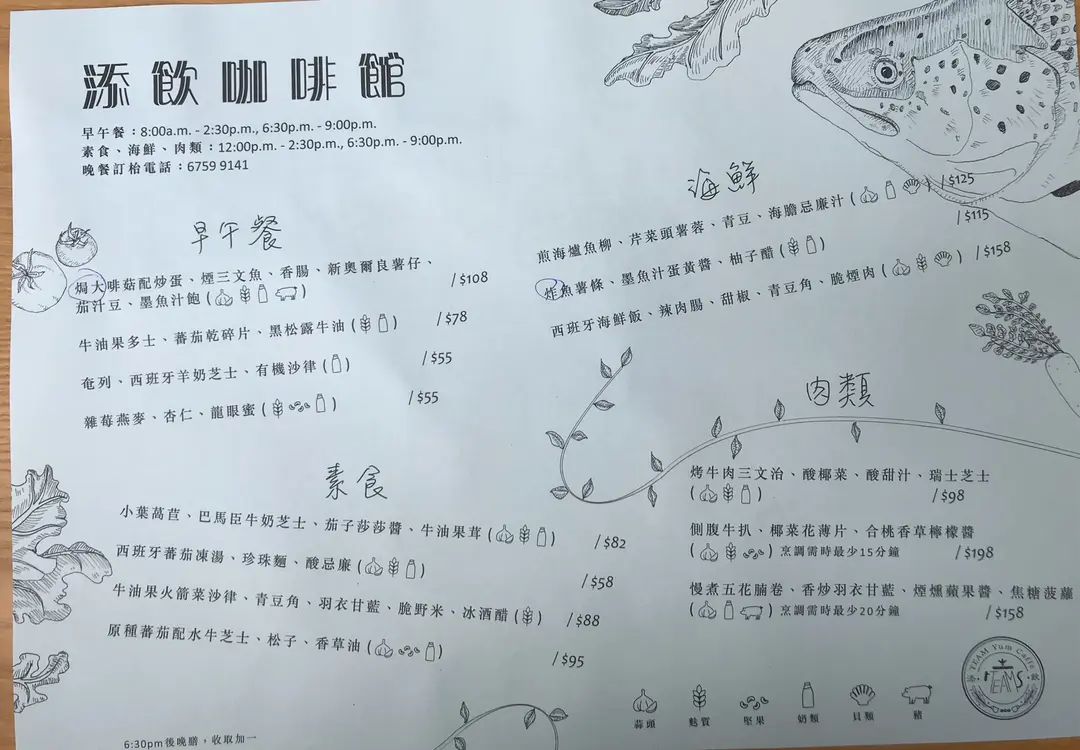 添飲咖啡館
早午餐：8:00a.m. - 2:30p.m., 6:30p.m. - 9:00p.m.
素食、海鮮、肉類：12:00p.m. - 2:30p.m., 6:30p.m. - 9:00p.m.
晚餐訂枱電話：6759 9141
早午餐
焗大啡菇配炒蛋、煙三文魚、香腸、新奧爾良薯仔、
茄汁豆、墨魚汁飽 ( ) / $108
牛油果多士、蕃茄乾碎片、黑松露牛油 ( ) / $78
奄列、西班牙羊奶芝士、有機沙律 ( ) / $55
雜莓燕麥、杏仁、龍眼蜜 ( ) / $55
素食
小葉萵苣、巴馬臣牛奶芝士、茄子莎莎醬、牛油果茸 ( ) / $82
西班牙蕃茄凍湯、珍珠麵、酸忌廉 ( ) / $58
牛油果火箭菜沙律、青豆角、羽衣甘藍、脆野米、冰酒醋 ( ) / $88
原種蕃茄配水牛芝士、松子、香草油 ( ) / $95
6:30pm後晚膳，收取加一
海鮮
煎海爐魚柳、芹菜頭薯蓉、青豆、海膽忌廉汁 ( ) / $125
炸魚薯條、墨魚汁蛋黃醬、柚子醋 ( ) / $115
西班牙海鮮飯、辣肉腸、甜椒、青豆角、脆煙肉 ( ) / $158
肉類
烤牛肉三文治、酸椰菜、酸甜汁、瑞士芝士
( ) / $98
側腹牛扒、椰菜花薄片、合桃香草檸檬醬
( ) 烹調需時最少15分鐘 / $198
慢煮五花腩卷、香炒羽衣甘藍、煙燻蘋果醬、焦糖菠蘿
( ) 烹調需時最少20分鐘 / $158
蒜頭 麩質 堅果 奶類 貝類 豬
添 TEAM Yum Caffe 飲
TEAMS